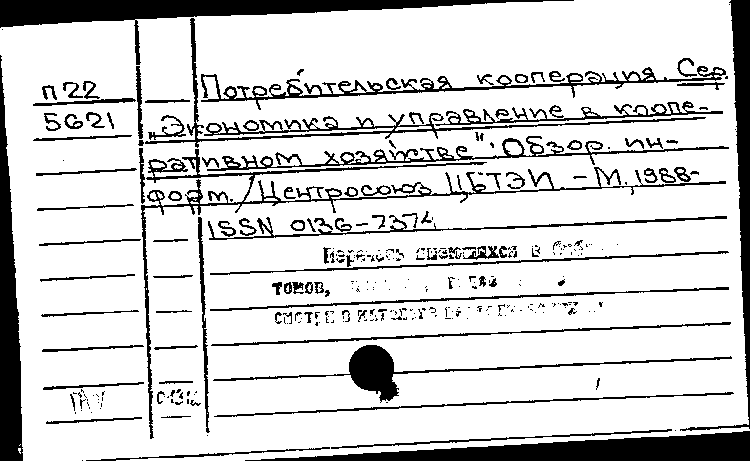 п22 Потребительская кооперация. Сер.
5621 „Экономика и управление в коопе-
ративном хозяйстве": Обзор. ин-
форм. / Центросоюз ЦБТЭИ. - М., 1988-
ISSN 0136-7374
Перечень имеющихся в
томов,
смотри в каталоге